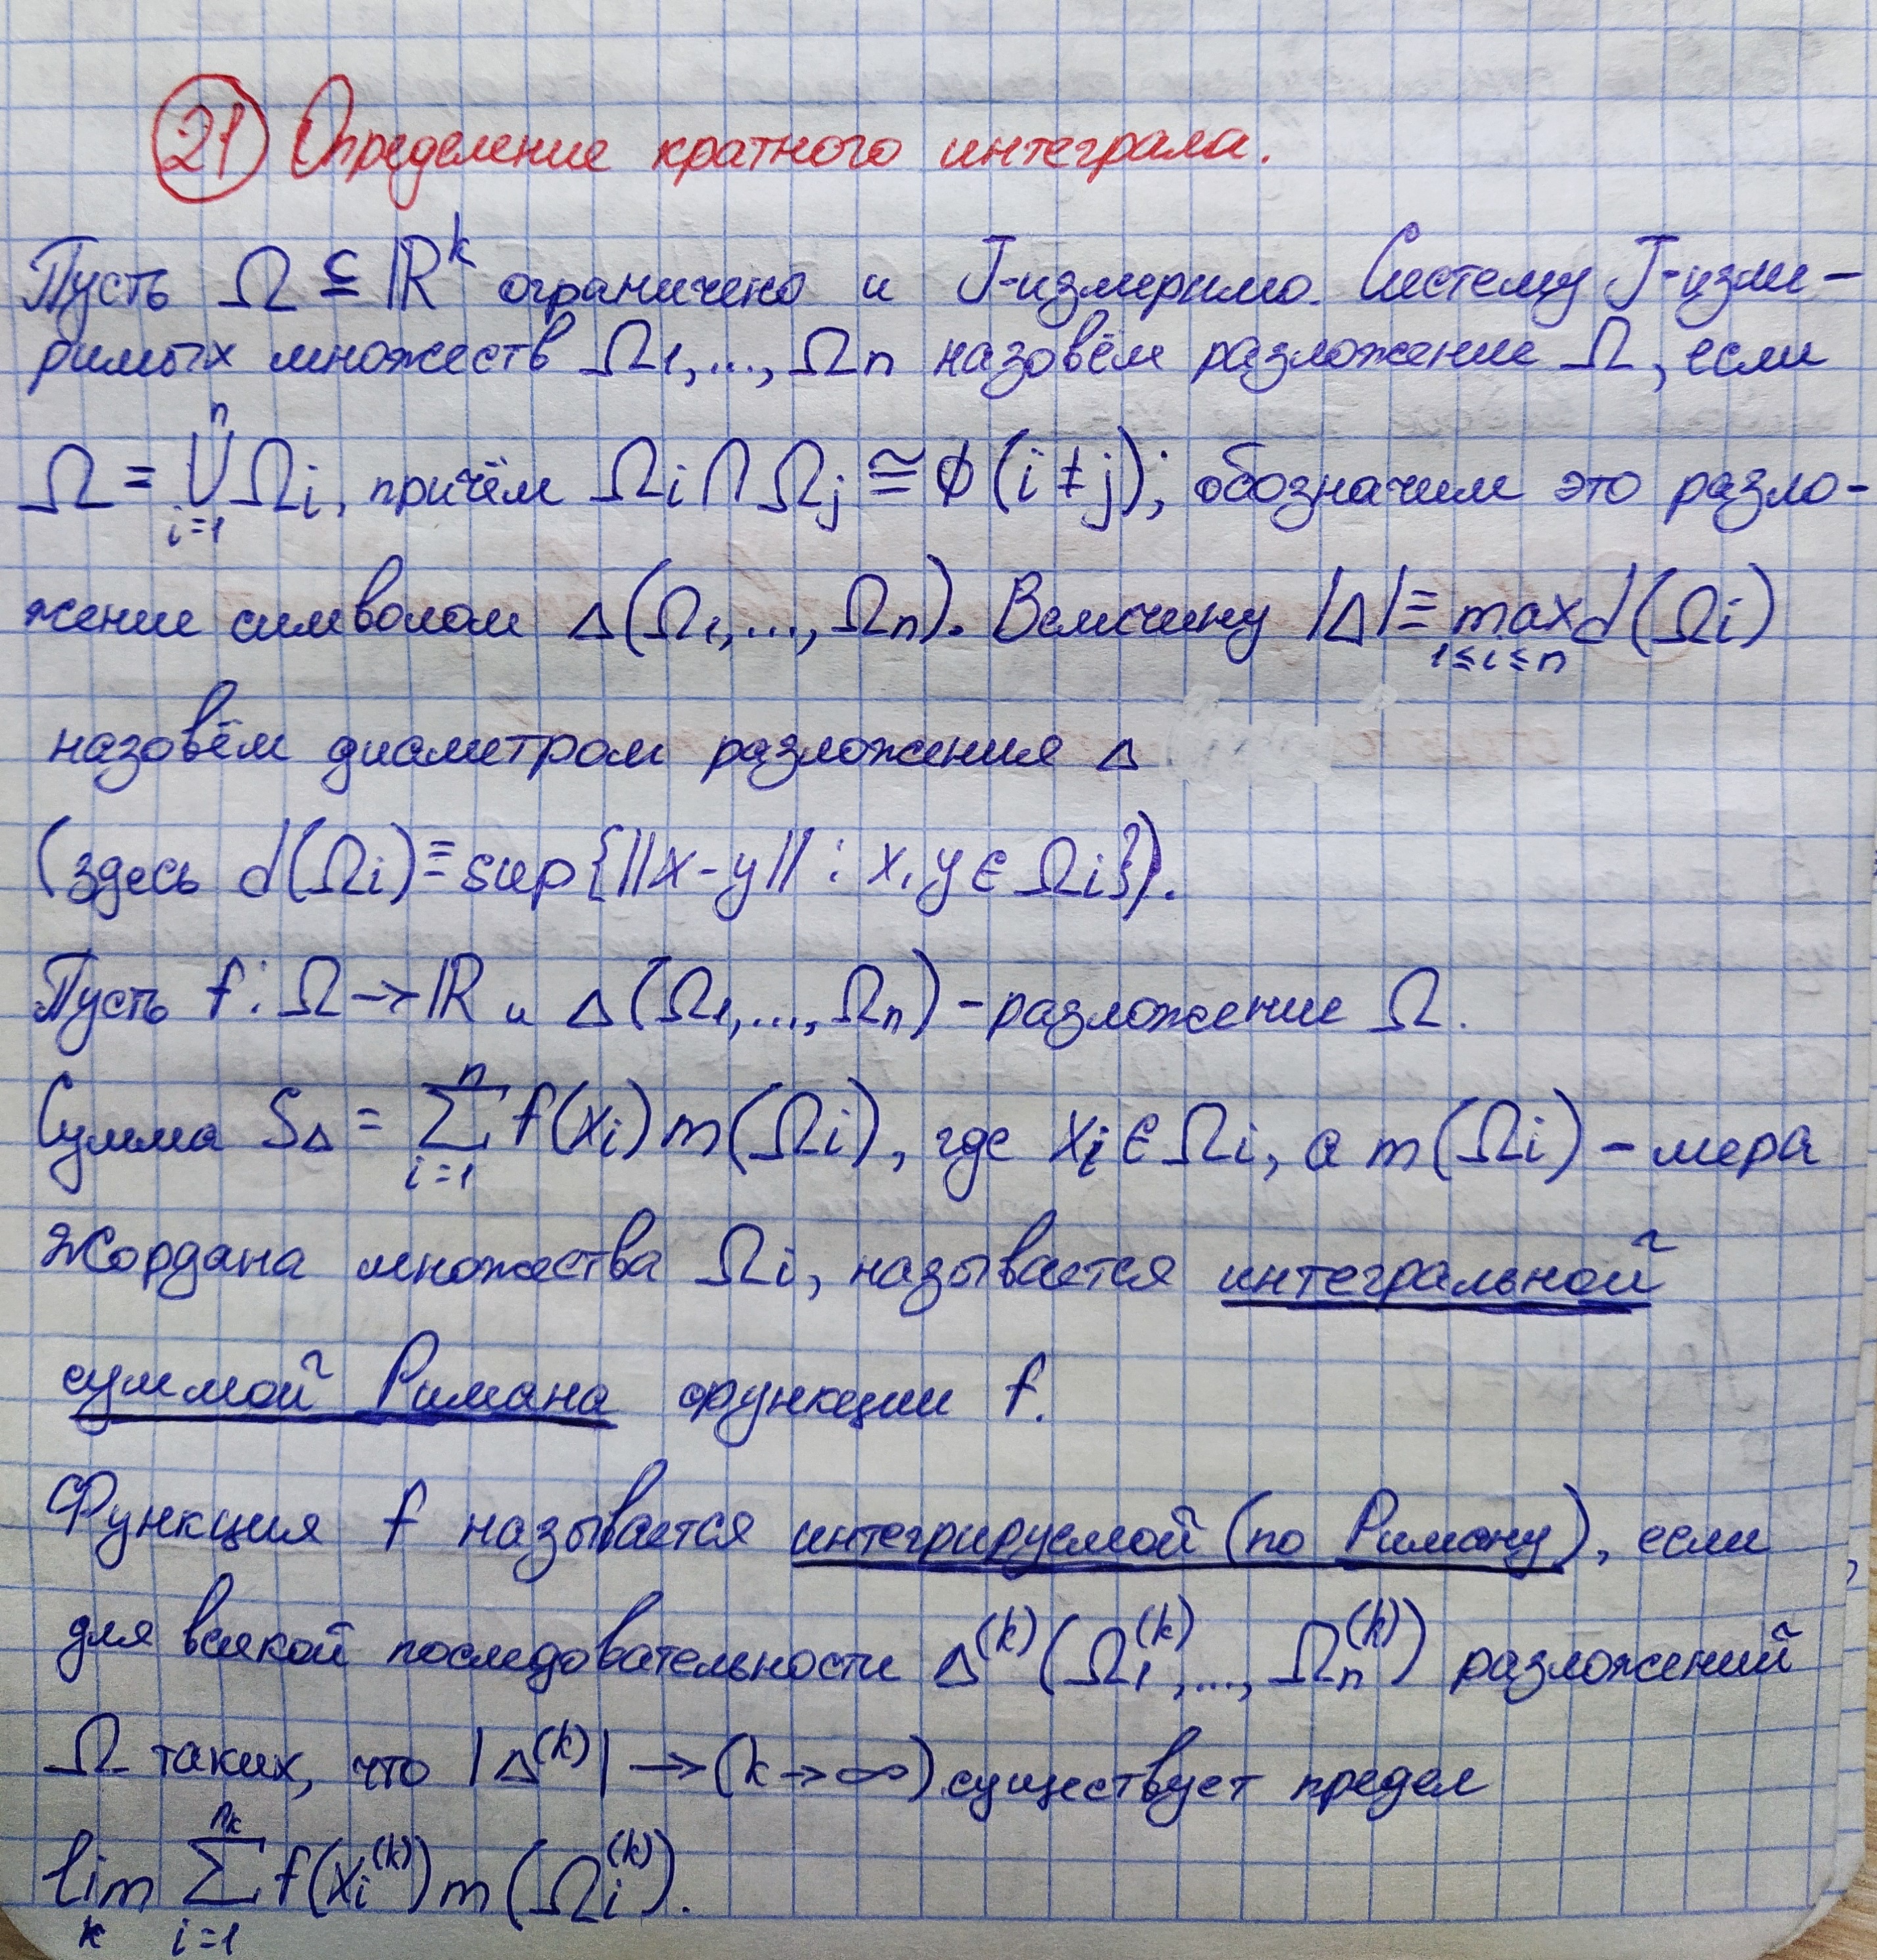 21 Определение кратного интеграла.
Пусть Ω ⊆ ℝᵏ ограничено и J-измеримо. Систему J-изме-
римых множеств Ω₁,...,Ωₙ назовём разложение Ω, если
Ω = ⋃ⁿᵢ₌₁ Ωᵢ, причём Ωᵢ ∩ Ωⱼ ≅ ∅ (i ≠ j); обозначим это разло-
жение символом Δ(Ω₁,...,Ωₙ). Величину |Δ| ≡ max d(Ωᵢ)
1≤i≤n
назовём диаметром разложения Δ
(здесь d(Ωᵢ) ≡ sup{||x-y|| : x,y ∈ Ωᵢ}).
Пусть f: Ω → ℝ и Δ(Ω₁,...,Ωₙ) - разложение Ω.
Сумма S_Δ = ∑ⁿᵢ₌₁ f(xᵢ) m(Ωᵢ), где xᵢ ∈ Ωᵢ, а m(Ωᵢ) - мера
Жордана множества Ωᵢ, называется интегральной
суммой Римана функции f.
Функция f называется интегрируемой (по Риману), если
для всякой последовательности Δ⁽ᵏ⁾(Ω₁⁽ᵏ⁾,...,Ωₙ⁽ᵏ⁾) разложений
Ω таких, что |Δ⁽ᵏ⁾| → (k → ∞) существует предел
lim_k ∑_{i=1}^{n_k} f(xᵢ⁽ᵏ⁾) m(Ωᵢ⁽ᵏ⁾).